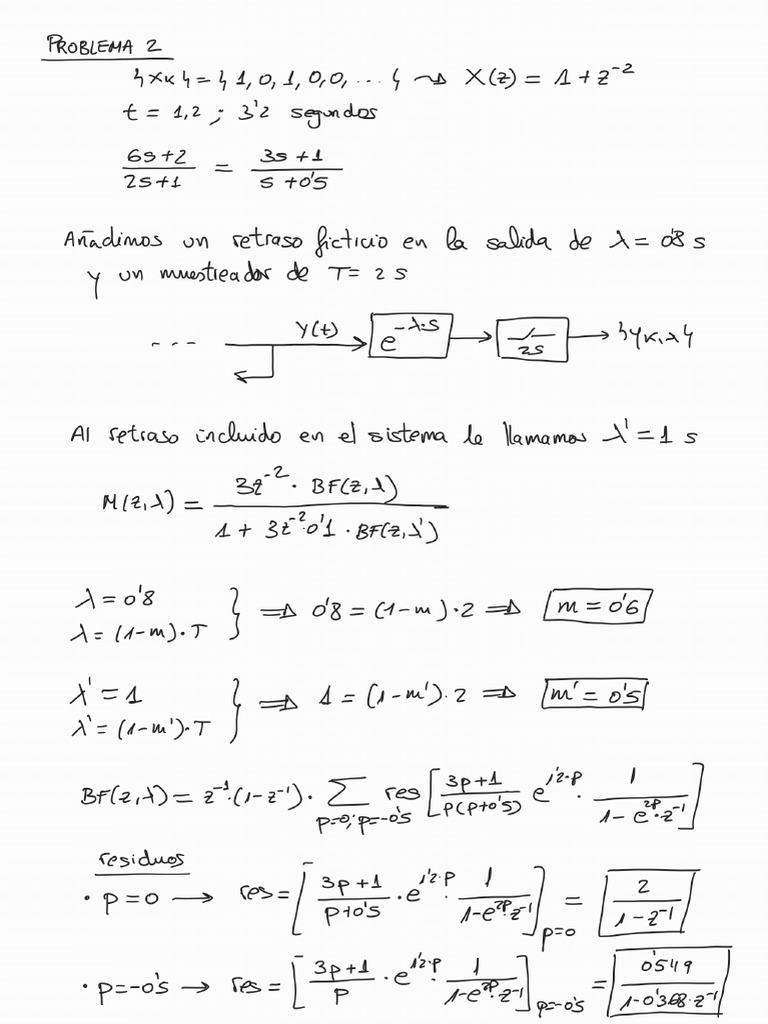 PROBLEMA 2
{xk} = {1, 0, 1, 0, 0, ...} ⇝ X(z) = 1 + z^-2
t = 1,2 ; 3'2 segundos
(6s+2)/(2s+1) = (3s+1)/(s+0'5)
Añadimos un retraso ficticio en la salida de λ = 0'8 s
y un muestreador de T = 2 s
... Y(t) e^-λ·s 2s {yk,λ}
Al retraso incluido en el sistema le llamamos λ' = 1 s
M(z,λ) = (3z^-2 · BF(z,λ))/(1 + 3z^-2·0'1 · BF(z,λ'))
λ = 0'8
λ = (1-m)·T } ⇒ 0'8 = (1-m)·2 ⇒ m = 0'6
λ' = 1
λ' = (1-m')·T } ⇒ 1 = (1-m')·2 ⇒ m' = 0'5
BF(z,λ) = z^-1·(1-z^-1)· Σ p=0; p=-0'5 res [(3p+1)/(p(p+0'5)) e^1'2·p · 1/(1-e^2p·z^-1)]
residuos
· p=0 → res = [(3p+1)/(p+0'5) · e^1'2·p · 1/(1-e^2p·z^-1)] p=0 = 2/(1-z^-1)
· p=-0'5 → res = [(3p+1)/p · e^1'2·p · 1/(1-e^2p·z^-1)] p=-0'5 = 0'549/(1-0'368·z^-1)